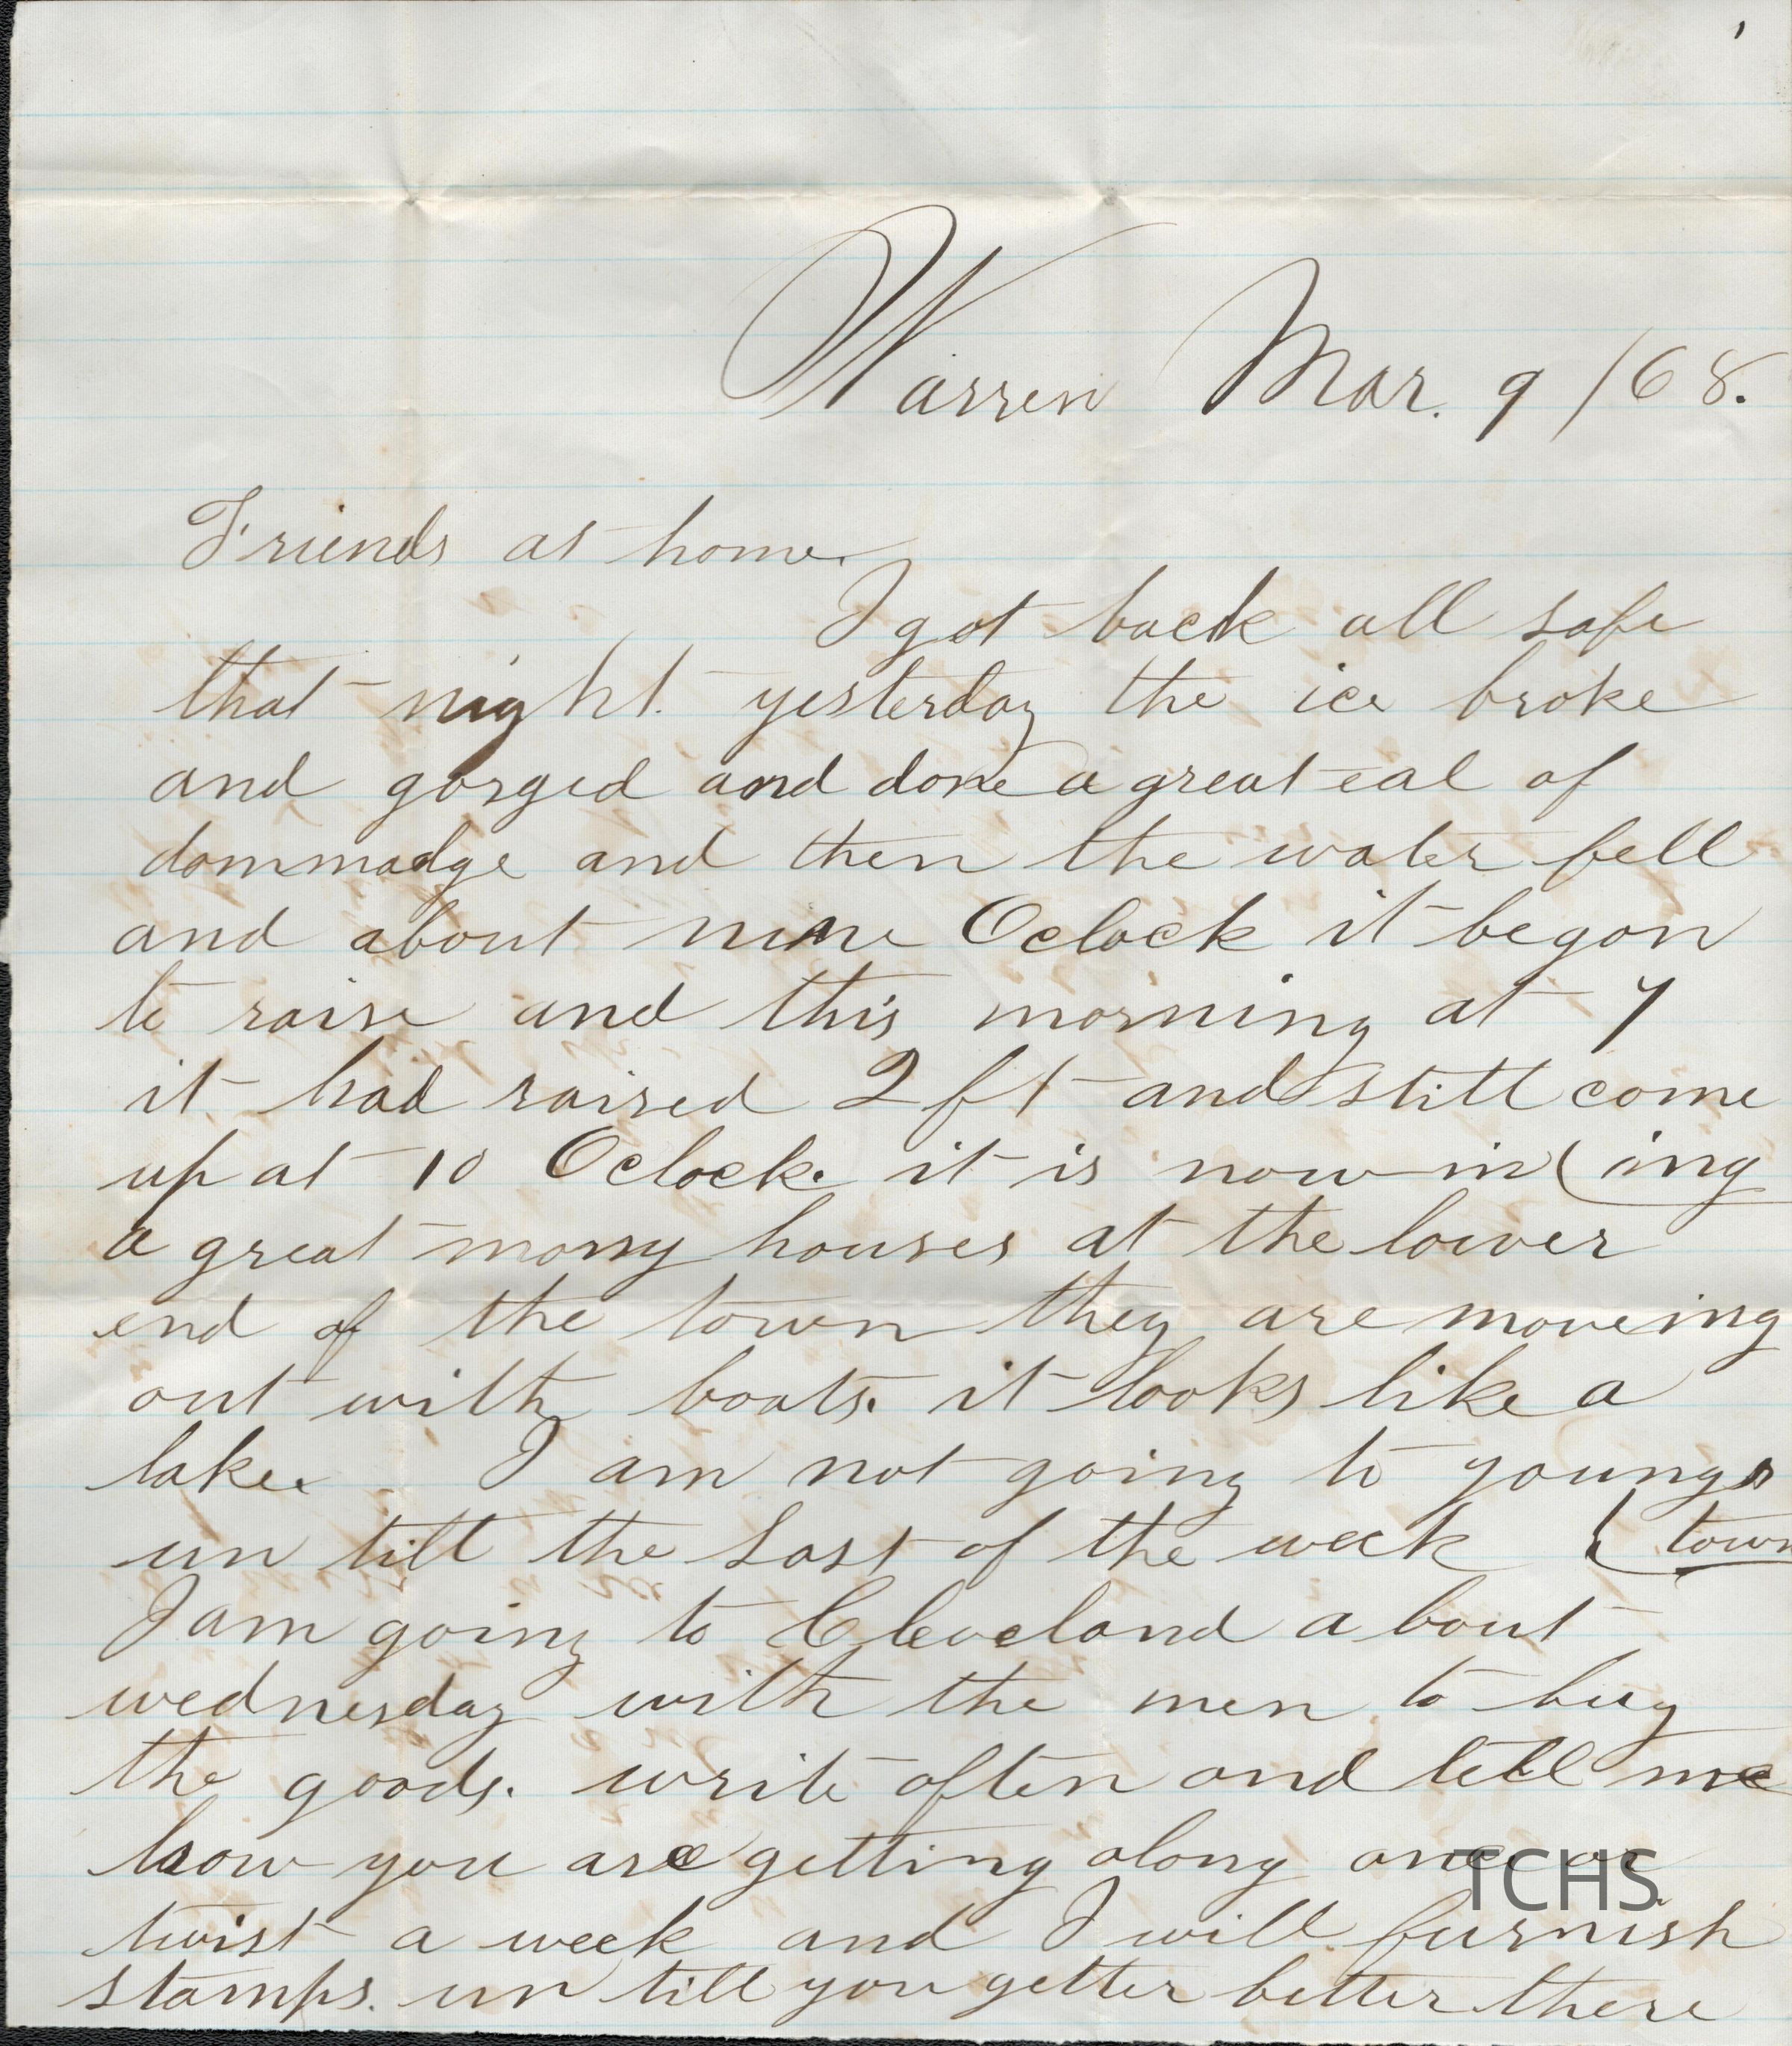 Warren Mar. 9 /68.
Friends at home.
I got back all safe
that night. yesterday the ice broke
and gorged and done a great eal of
dommadge and then the water fell
and about nine Oclock it began
to raise and this morning at 7
it had raised 2 ft and still come
up at 10 Oclock. it is now in (ing
a great many houses at the lower
end of the town they are moveing
out with boats. it looks like a
lake. I am not going to youngs
un till the Last of the week (town
I am going to Cleveland a bout
wednesday with the men to buy
the goods. write often and tell me
how you are getting along once or
twist a week and I will furnish
stamps. un till you getter better there
TCHS